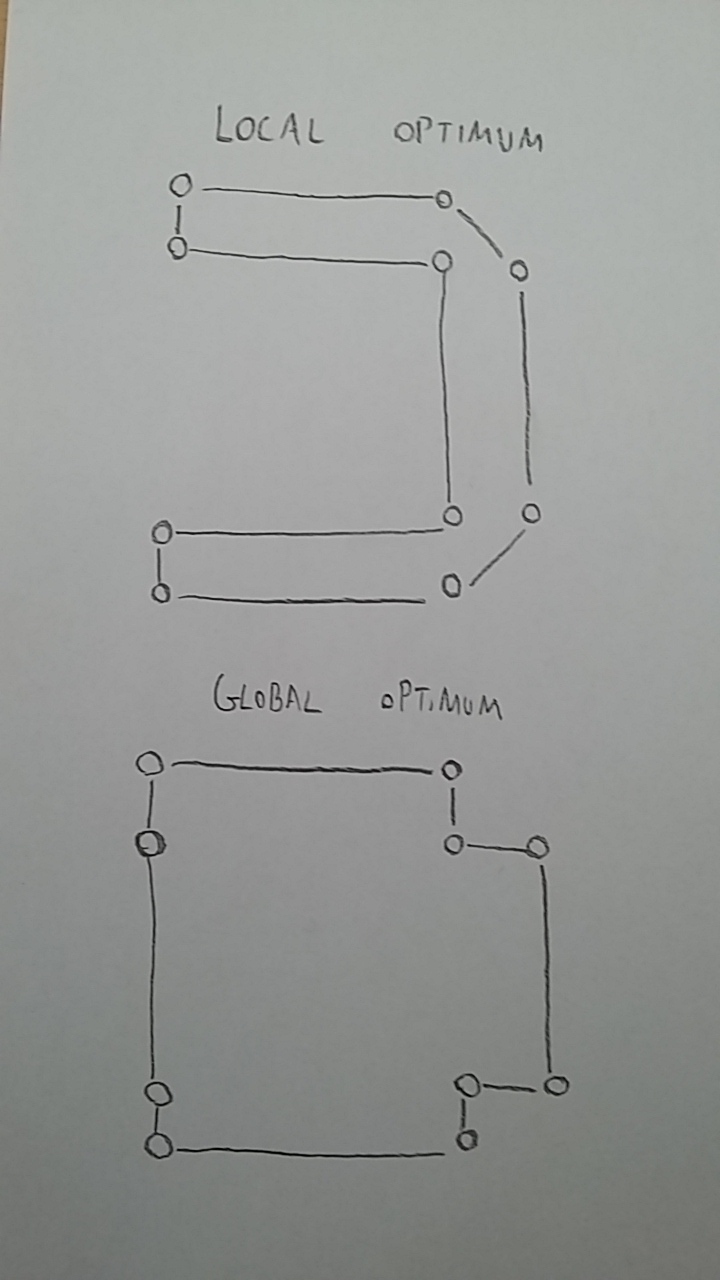 LOCAL OPTIMUM
GLOBAL OPTIMUM